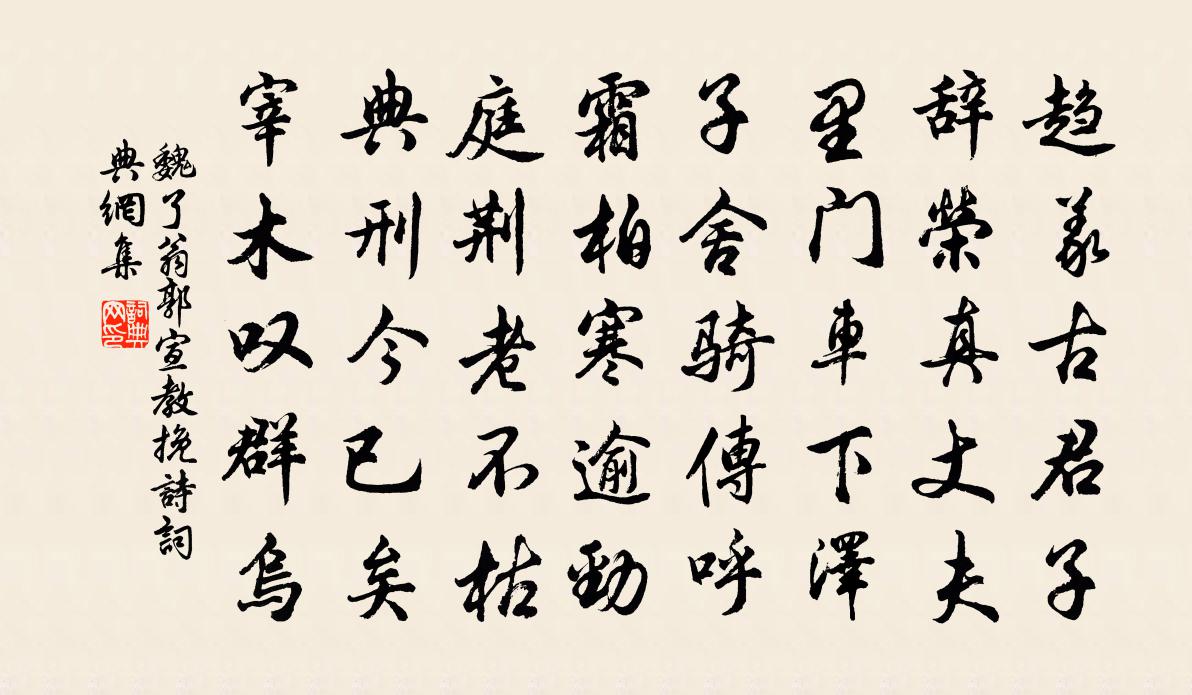 趋義古君子
辞榮真丈夫
里門車下澤
子舍騎傳呼
霜柏寒逾勁
庭荆老不枯
典刑今已矣
宰木叹群烏
魏了翁郭宣教挽詩詞
典網集
詞典网印